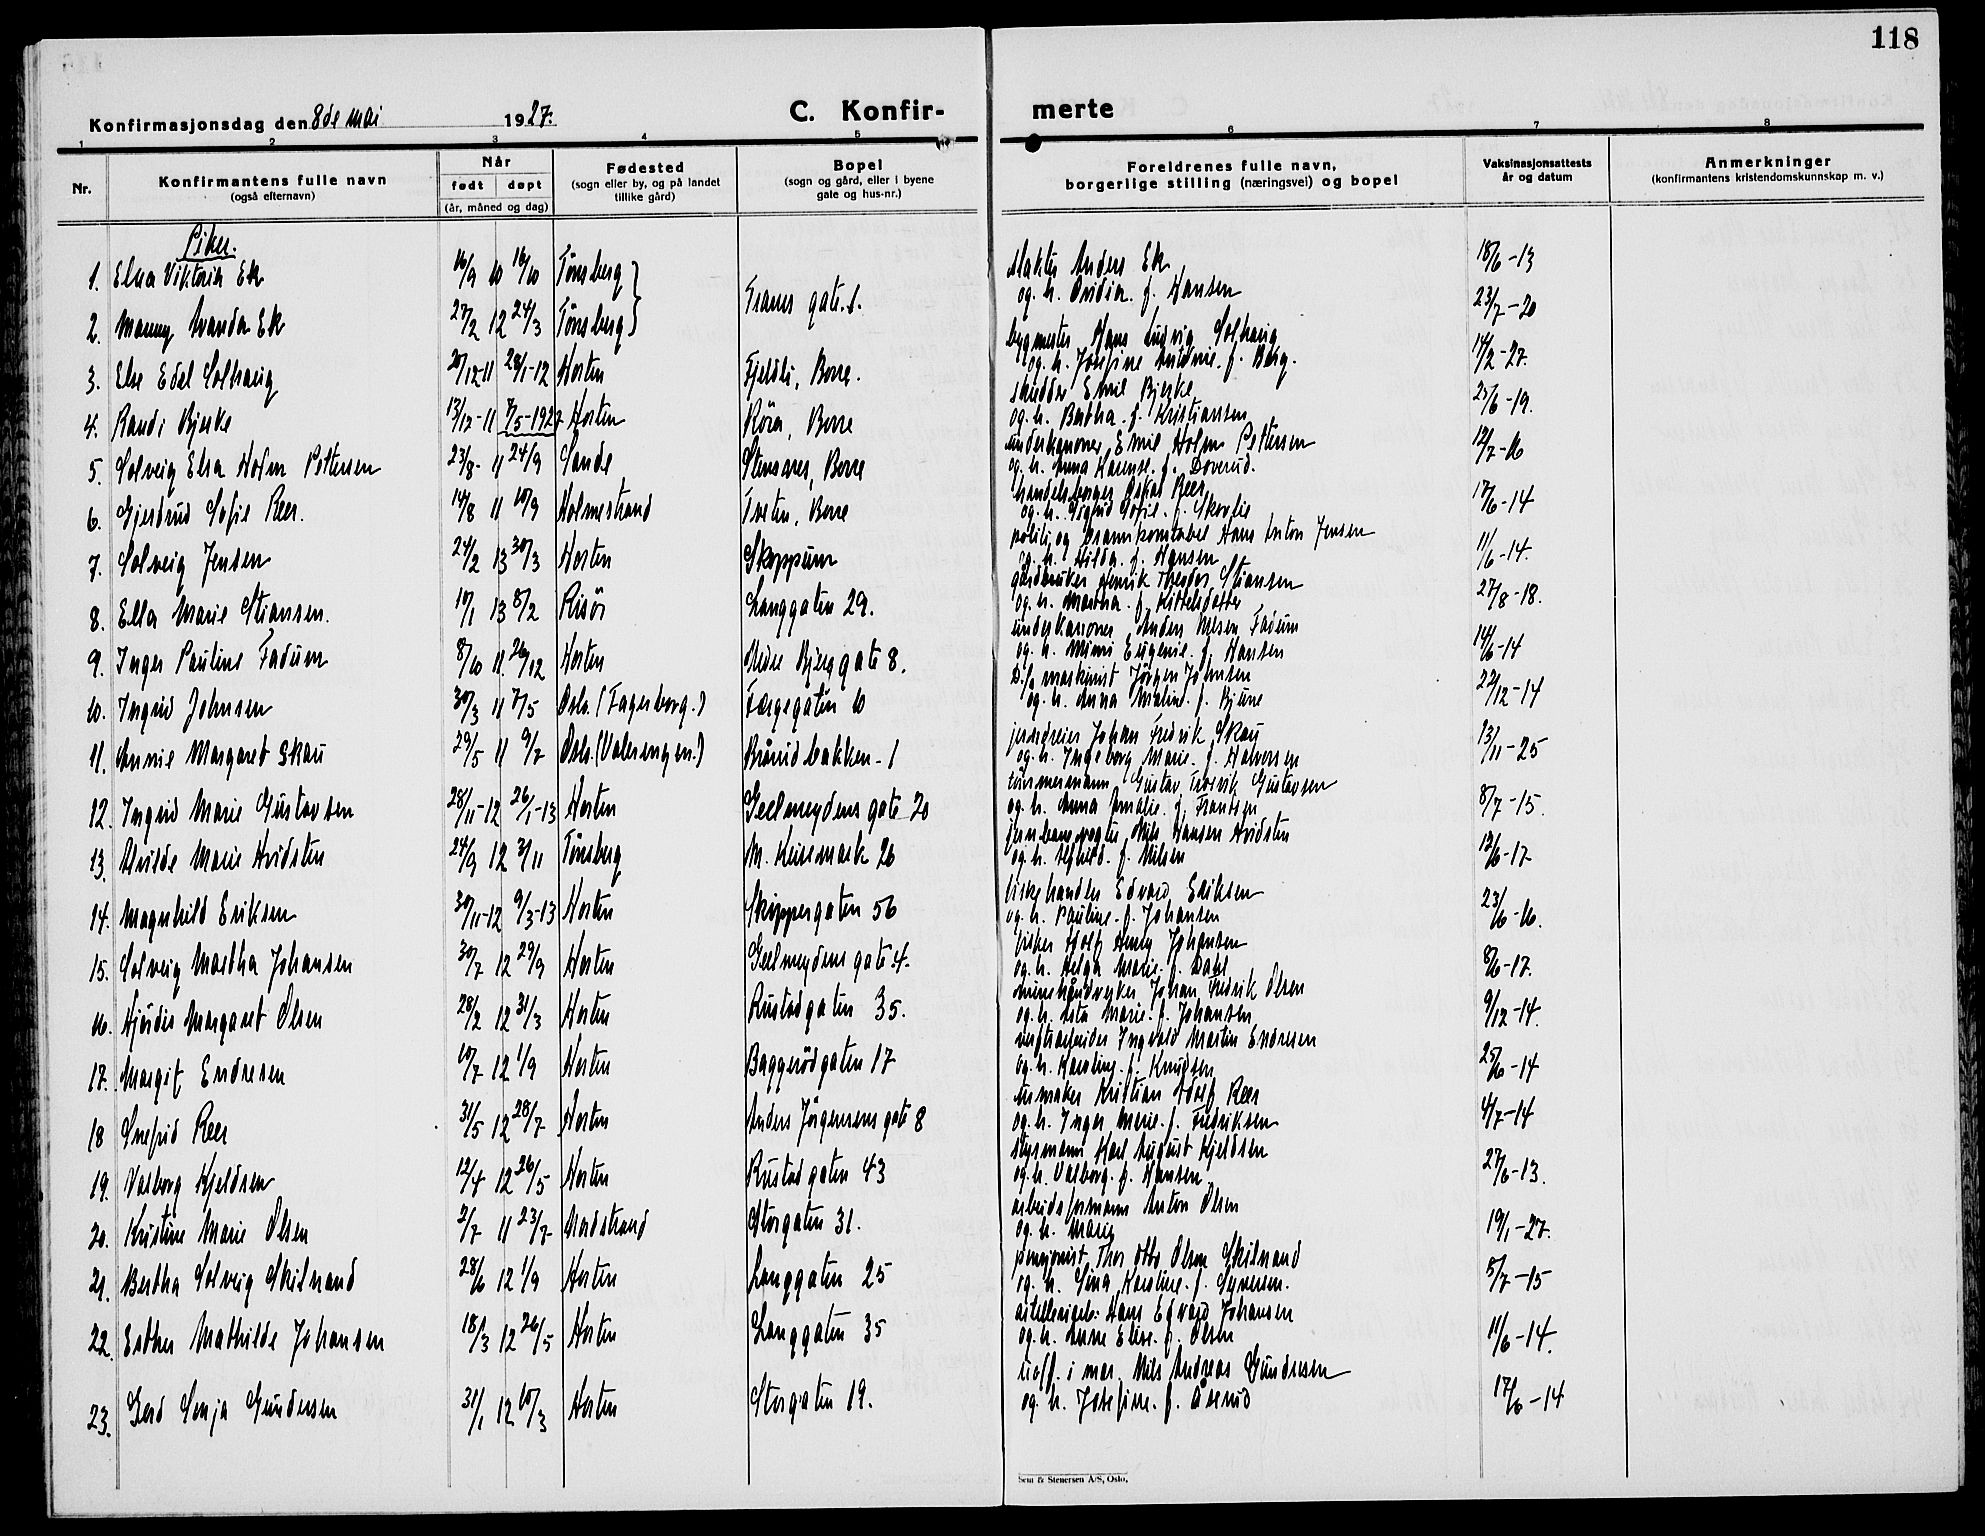 118
Konfirmasjonsdag den 8de mai 1927.
C. Konfirmerte
1 2 3 4 5 6 7 8
Nr.
Konfirmantens fulle navn
(også efternavn)
Når
født døpt
(år, måned og dag)
Fødested
(sogn eller by, og på landet
tillike gård)
Bopel
(sogn og gård, eller i byene
gate og hus-nr.)
Foreldrenes fulle navn,
borgerlige stilling (næringsvei) og bopel
Vaksinasjonsattests
år og datum
Anmerkninger
(konfirmantens kristendomskunnskap m. v.)
Piker.
1. Elsa Viktoria Ek 16/9 10 16/10 Tønsberg
slakter Anders Ek 18/6-13
og h. Ovidia f. Hansen
2. Wanda Ek 27/2 12 24/3 Tønsberg Trams gate 1. 23/7-20
3. Else Edel Solhaug 20/12-11 28/1-12 Horten Fjeldli, Borre.
bygmester Hans Ludvig Solhaug 14/2-27.
og h. Josefine Antonie f. Berg.
4. Randi Bjerke 13/12-11 7/5-1922 Horten Røra, Borre
skredder Emil Bjerke 25/6-19.
og h. Bertha f. Kristiansen
5. Solveig Elsa Holm Pettersen 23/8- 11 24/9 Sande Stensnes, Borre
underkanoner Emil Holm Pettersen 12/7-16
og h. Anna Karense f. Doverud.
6. Gjertrud Sofie Reer. 14/8 11 10/9 Holmestrand Tveten, Borre
handelsborger Oskar Reer 17/6-14
og h. Sigrid Sofie f. Skovlie
7. Solveig Jensen 24/2 13 30/3 Horten Skoppum
politi og brannkonstabel Hans Anton Jensen 11/6-14.
og h. Hilda f. Hansen
8. Ella Marie Stiansen. 10/1 13 8/2 Risør Langgaten 29.
gårdbruker Henrik Theodor Stiansen 27/8-18.
og h. Martha f. Kittelsdatter
9. Inger Pauline Fadum 8/10 11. 26/12 Horten Nedre Bjerggate 8.
underkanoner Anders Nilsen Fadum 14/6-14
og h. Mimi Eugenie f. Hansen
10. Ingrid Johnsen 30/3 11 7/5 Oslo (Fagerborg.) Færgegaten 10
D/s maskinist Jørgen Johnsen 22/12-14
og h. Anna Malene f. Bjune
11. Annie Margaret Skau 29/5 11 9/7 Oslo. (Valerengen.) Brårudbakken - 1
jernstøper Johan Fredrik Skau 13/11-25
og h. Ingeborg Marie f. Halvorsen
12. Ingrid Marie Gustavsen 28/11-12 26/1-13 Horten Geelmeydens gate 20
tømmermann Gustav Fredrik Gustavsen 8/7-15.
og h. Anna Amalie f. Frantzen
13. Hvidsten 24/9 12 3/11 Tønsberg M. Keisemark 26
jernbanevogter Nils Hansen Hvidsten 12/6-17
og h. Alfhild f. Nilsen
14. Magnhild Eriksen 30/11-12 9/3-13 Horten Skippergaten 56
fiskehandler Edvard Eriksen 23/6-16.
og h. Pauline f. Johansen
15. Solveig Martha Johansen 30/7 12 29/9 Horten Geelmeydens gate 4.
fisker Rolf Henry Johansen 8/6-17.
og h. Helga Marie f. Dahl
16. Hjørdis Margaret Olsen 28/2 12 31/3 Horten Rustadgaten 35.
minehåndverker Johan Fredrik Olsen 9/12-14.
og h. Asta Marie f. Johansen
17. Margit Endresen 10/7 12 1/9 Horten Baggerødgaten 17
verftsarbeider Ingvald Martin Endresen 25/6-14
og h. Karoline f. Knudsen
18 Snefrid Reer 31/5 12 28/7 Horten Anders Jørgensens gate 8
urmaker Kristian Adolf Reer 4/7-14
og h. Inger Marie f. Fredriksen
19. Valborg Kjeldsen 12/4 12 26/5 Horten Rustadgaten 43
styrmann Karl August Kjeldsen 27/6-13.
og h. Valborg f. Hansen
20. Kristine Marie Olsen 2/7 11 23/7 Nordstrand Storgaten 31.
arbeidsformann Anton Olsen 19/1-27.
og h. Marie
21. Bertha Solveig Skilrand 28/6 12 1/9 Horten Langgaten 25
pensjonist Thor Otto Olsen Skilrand 5/7-15
og h. Gina Karoline f. Syversen.
22. Esther Mathilde Johansen 18/3 12 26/5 Horten Langgaten 35
Hans Edvard Johansen 11/6-14.
og h. Anne Elise f. Olsen
23. Gerd Sonja Gundersen 31/1 12 10/3 Horten Storgaten 19.
uoff. i mar. Nils Andreas Gundersen 17/6-14
og h. Josefine f. Åserud
Sem & Stenersen A/S, Oslo.